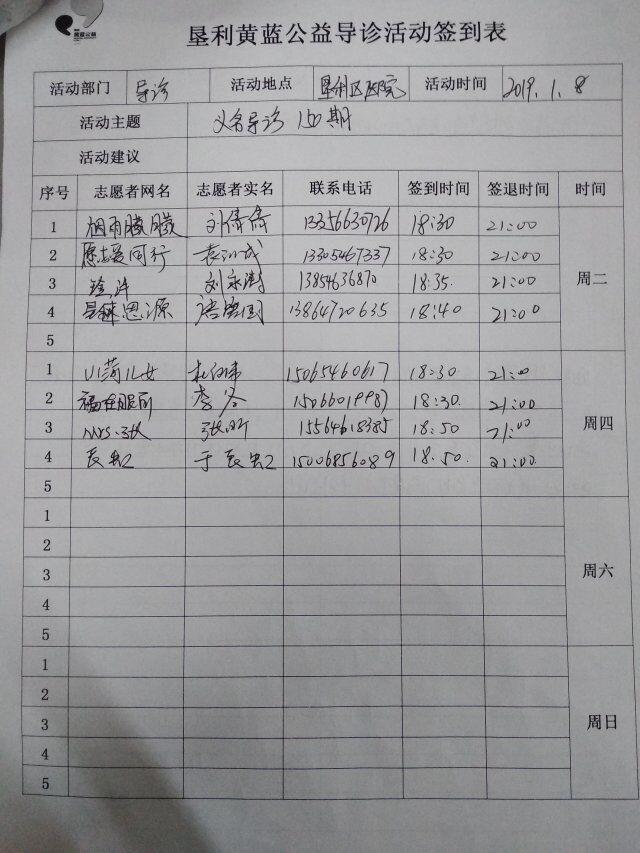 黄蓝公益
垦利黄蓝公益导诊活动签到表
活动部门 导诊 活动地点 垦利区医院 活动时间 2019.1.8
活动主题 义务导诊 150期
活动建议
序号 志愿者网名 志愿者实名 联系电话 签到时间 签退时间 时间
1 烟雨朦朦 刘倩倩 13256630726 18:30 21:00
2 愿志爱同行 13305467337 18:30 21:00
3 刘永涛 13854636870 18:35 21:00
4 思源 13864720635 18:40 21:00
5
周二
1 儿女 15065460617 18:30 21:00
2 福在眼前 李谷 15066019987 18:30 21:00
3 张昕 15564618385 18:50 21:00
4 长虹 于长虹 15006856089 18:50 21:00
5
周四
1
2
3
4
5
周六
1
2
3
4
5
周日